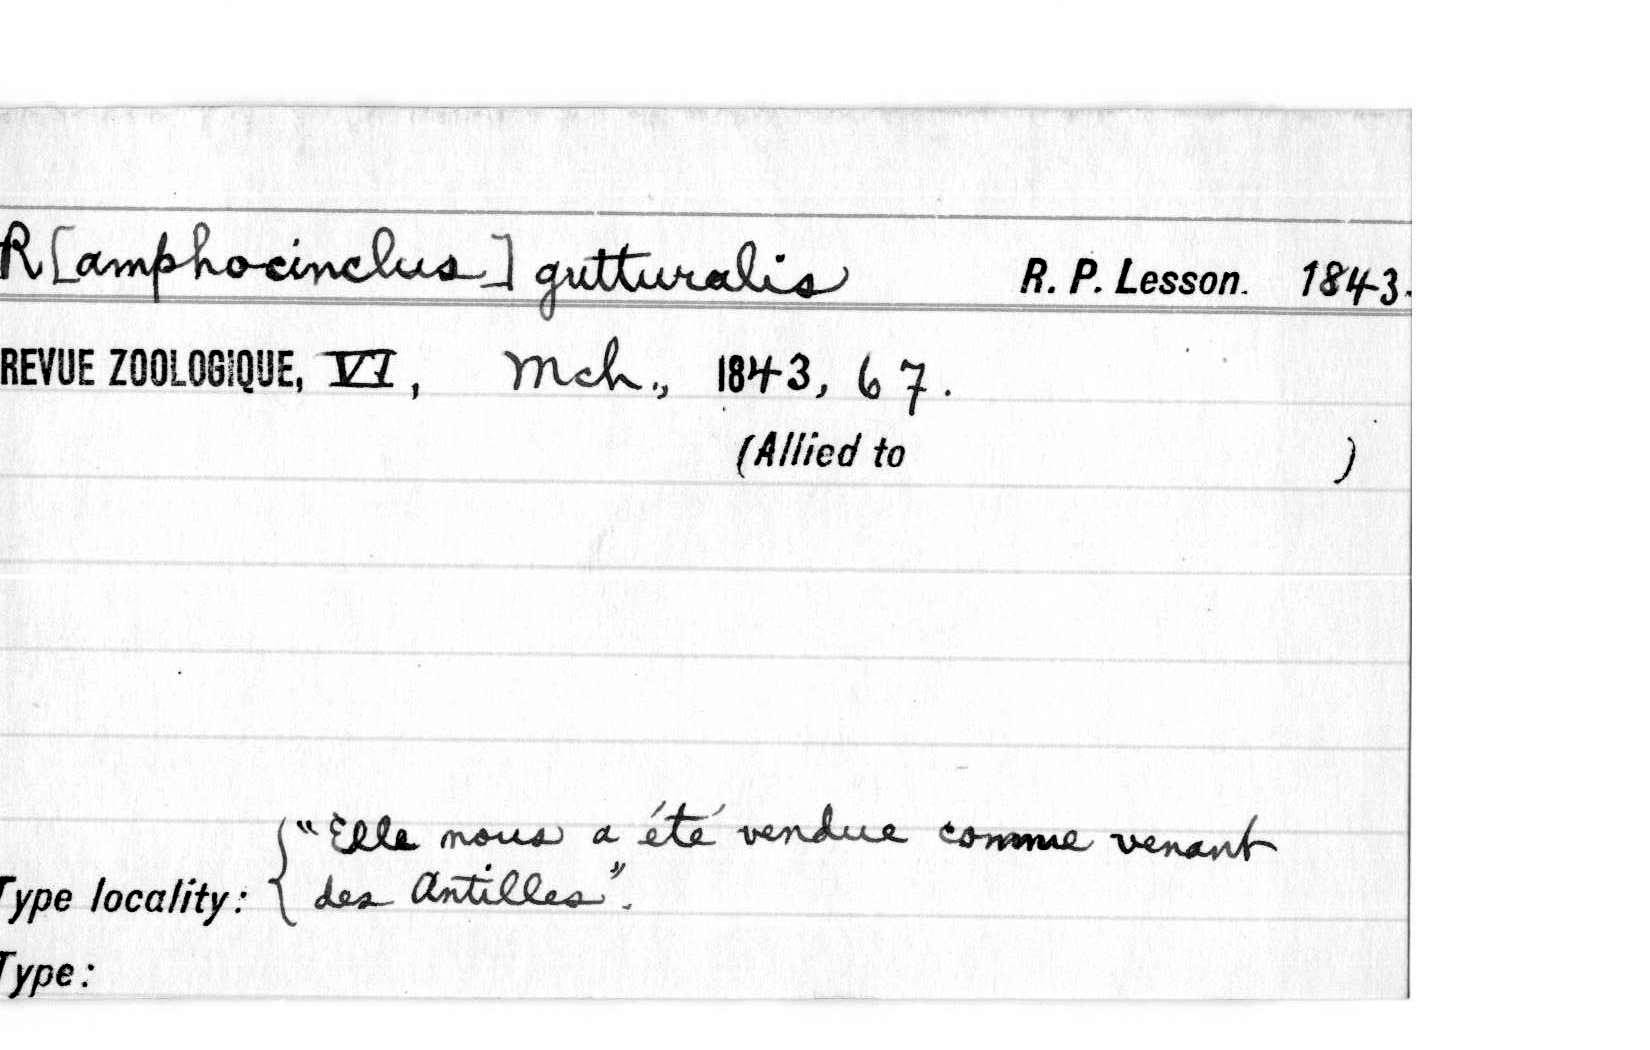 R[amphocinclus] gutturalis R. P. Lesson. 1843.
REVUE ZOOLOGIQUE, VI, Mch., 1843, 67.
(Allied to )
"Elle nous a été vendue comme venant
Type locality: des Antilles".
Type: